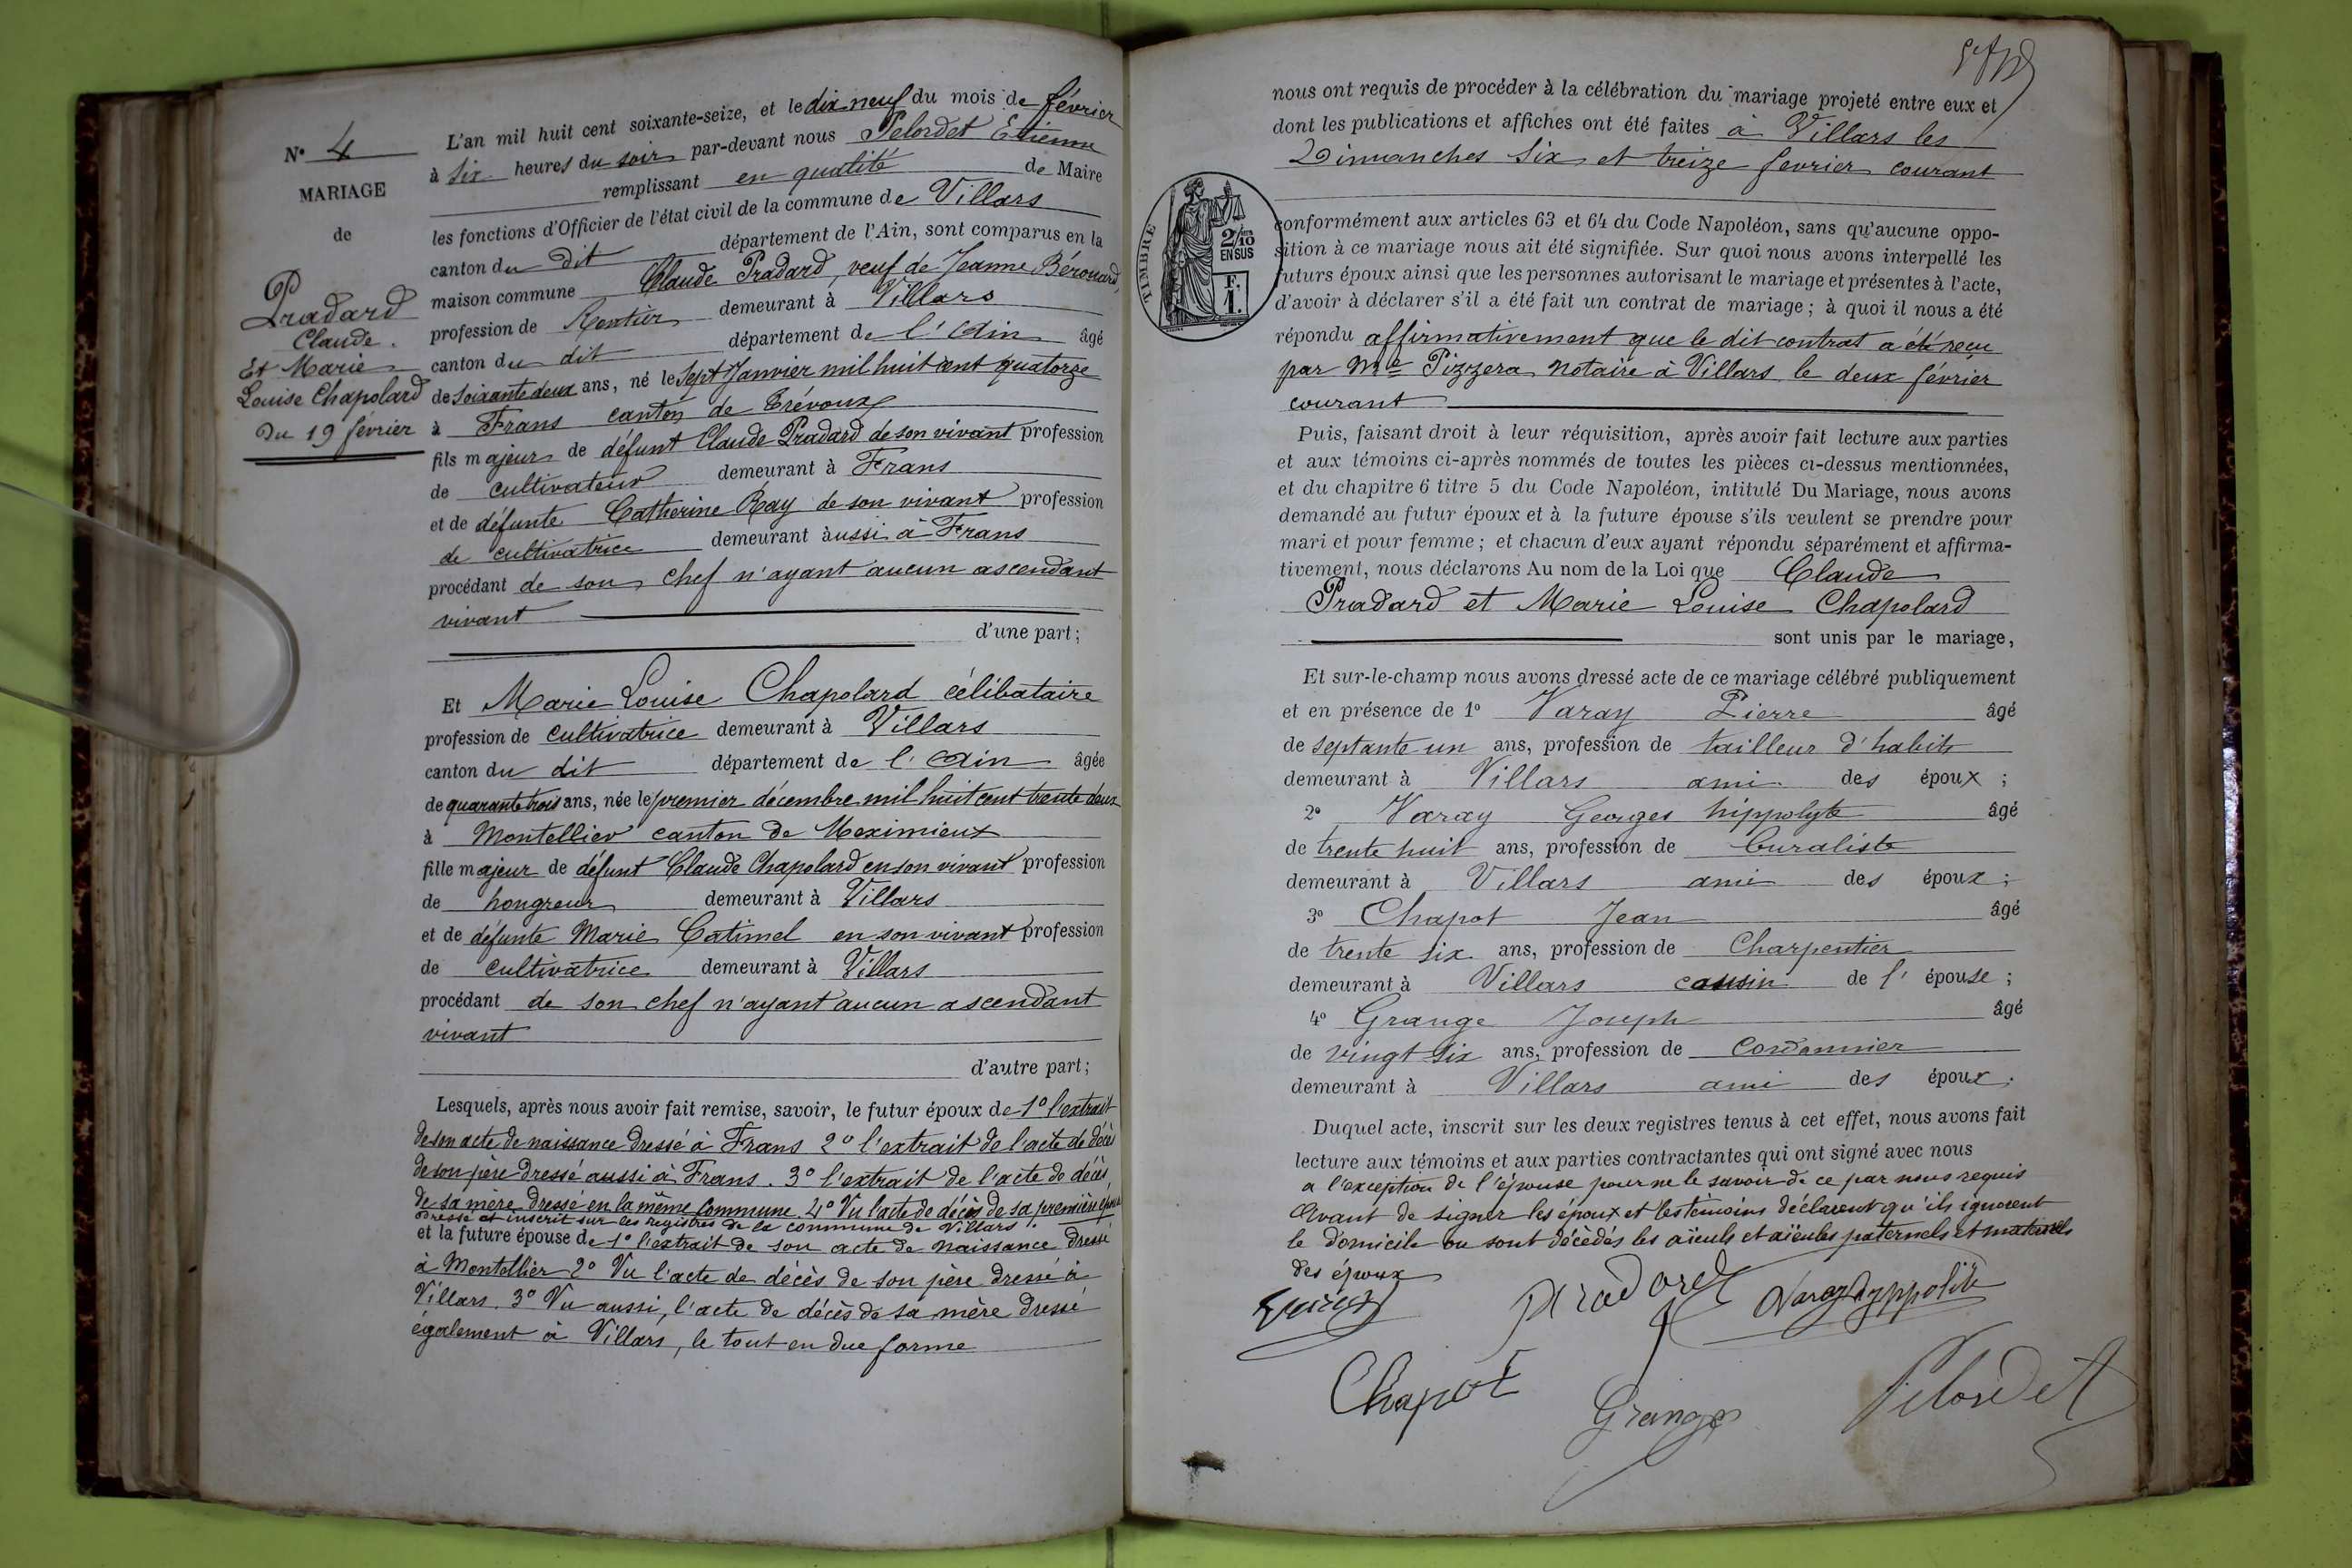 N° 4
MARIAGE
de
Pradard
Claude.
Et Marie
Louise Chapolard
Du 19 février
L'an mil huit cent soixante-seize, et le dix neuf du mois de février
à six heures du soir par-devant nous Pelordet Etienne
remplissant en qualité de Maire
les fonctions d'Officier de l'état civil de la commune de Villars
canton du dit département de l'Ain, sont comparus en la
maison commune Claude Pradard, veuf de Jeanne Bérouard,
profession de Rentier demeurant à Villars
canton du dit département de l'Ain âgé
de soixante deux ans, né le sept Janvier mil huit cent quatorze
à Frans canton de Trévoux
fils majeur de défunt Claude Pradard de son vivant profession
de cultivateur demeurant à Frans
et de défunte Catherine Ray de son vivant profession
de cultivatrice demeurant aussi à Frans
procédant de son chef n'ayant aucun ascendant
vivant
d'une part;
Et Marie Louise Chapolard célibataire
profession de cultivatrice demeurant à Villars
canton du dit département de l'Ain âgée
de quarante trois ans, née le premier décembre mil huit cent trente deux
à Montellier canton de Meximieux
fille majeur de défunt Claude Chapolard en son vivant profession
de hongreur demeurant à Villars
et de défunte Marie Catimel en son vivant profession
de cultivatrice demeurant à Villars
procédant de son chef n'ayant aucun ascendant
vivant
d'autre part;
Lesquels, après nous avoir fait remise, savoir, le futur époux de 1° l'extrait
de son acte de naissance dressé à Frans 2° l'extrait de l'acte de décès
de son père dressé aussi à Frans. 3° l'extrait de l'acte de décès,
de sa mère dressé en la même Commune. 4° Vu l'acte de décès de sa première épouse
dressé et inscrit sur les registres de la commune de Villars.
et la future épouse de 1° l'extrait de son acte de naissance dressé
à Montellier 2° Vu l'acte de décès de son père dressé à
Villars. 3° Vu aussi, l'acte de décès de sa mère dressé
également à Villars, le tout en due forme
nous ont requis de procéder à la célébration du mariage projeté entre eux et
dont les publications et affiches ont été faites à Villars les
Dimanches six et treize fevrier courant
TIMBRE
2/10
EN SUS
F.
1.
conformément aux articles 63 et 64 du Code Napoléon, sans qu'aucune oppo-
sition à ce mariage nous ait été signifiée. Sur quoi nous avons interpellé les
futurs époux ainsi que les personnes autorisant le mariage et présentes à l'acte,
d'avoir à déclarer s'il a été fait un contrat de mariage; à quoi il nous a été
répondu affirmativement que le dit contrat a été reçu
par Me Pizzera notaire à Villars le deux février
courant
Puis, faisant droit à leur réquisition, après avoir fait lecture aux parties
et aux témoins ci-après nommés de toutes les pièces ci-dessus mentionnées,
et du chapitre 6 titre 5 du Code Napoléon, intitulé Du Mariage, nous avons
demandé au futur époux et à la future épouse s'ils veulent se prendre pour
mari et pour femme; et chacun d'eux ayant répondu séparément et affirma-
tivement, nous déclarons Au nom de la Loi que Claude
Pradard et Marie Louise Chapolard
sont unis par le mariage,
Et sur-le-champ nous avons dressé acte de ce mariage célébré publiquement
et en présence de 1° Varay Pierre âgé
de septante un ans, profession de tailleur d'habits
demeurant à Villars ami des époux;
2° Varay Georges hippolyte âgé
de trente huit ans, profession de buraliste
demeurant à Villars ami des époux;
3° Chapot Jean âgé
de trente six ans, profession de Charpentier
demeurant à Villars cousin de l'épouse;
4° Grange Joseph âgé
de vingt six ans, profession de Cordonnier
demeurant à Villars ami des époux.
Duquel acte, inscrit sur les deux registres tenus à cet effet, nous avons fait
lecture aux témoins et aux parties contractantes qui ont signé avec nous
a l'exception de l'épouse pour ne le savoir de ce par nous requis
Avant de signer les époux et les témoins déclarent qu'ils ignorent
le domicile ou sont décédés les aïeuls et aïeules paternels et maternels
des époux
pradard Varay hyppolite
Chapot Grange Pelordet